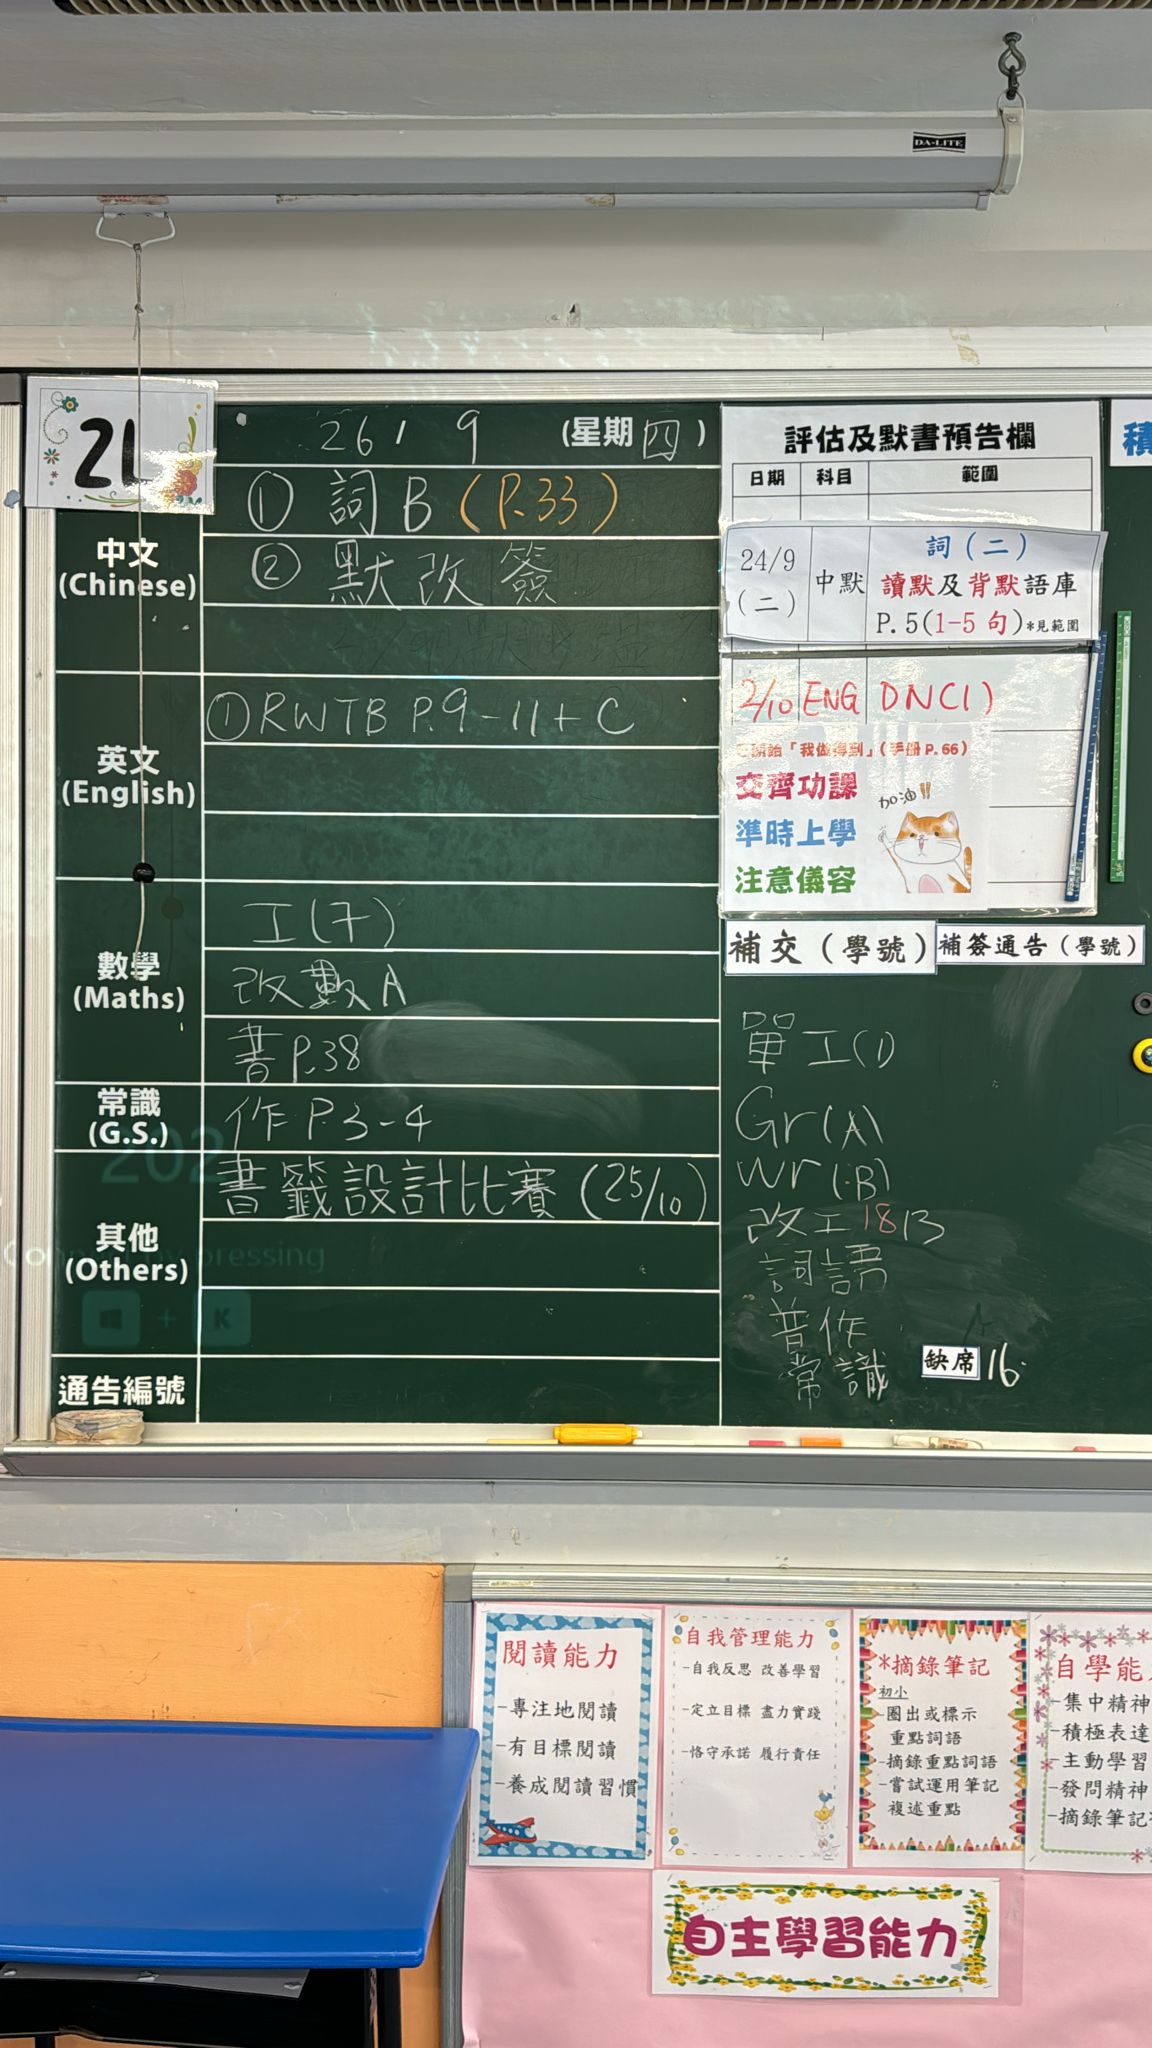 DA-LITE
2L
26 / 9 (星期四)
中文
(Chinese)
① 詞B (P.33)
② 默改簽
英文
(English)
① RWTB P.9-11+C
數學
(Maths)
工(7)
改數A
書P.38
常識
(G.S.)
作P.3-4
其他
(Others)
書籤設計比賽(25/10)
通告編號
202
pressing
K
評估及默書預告欄
日期 科目 範圍
24/9 (二) 中默 詞(二)
讀默及背默語庫
P.5(1-5句)*見範圍
2/10 ENG DN(1)
「我做得到」(手冊P.66)
交齊功課
準時上學
注意儀容
加油!!
積
補交(學號) 補簽通告(學號)
單工(1)
Gr(A)
Wr(B)
改工 18 13
詞語
普作
常識
缺席 16
閱讀能力
-專注地閱讀
-有目標閱讀
-養成閱讀習慣
自我管理能力
-自我反思 改善學習
-定立目標 盡力實踐
-恪守承諾 履行責任
*摘錄筆記
初小
-圈出或標示
重點詞語
-摘錄重點詞語
-嘗試運用筆記
複述重點
自學能
-集中精神
-積極表達
-主動學習
-發問精神
-摘錄筆記
自主學習能力